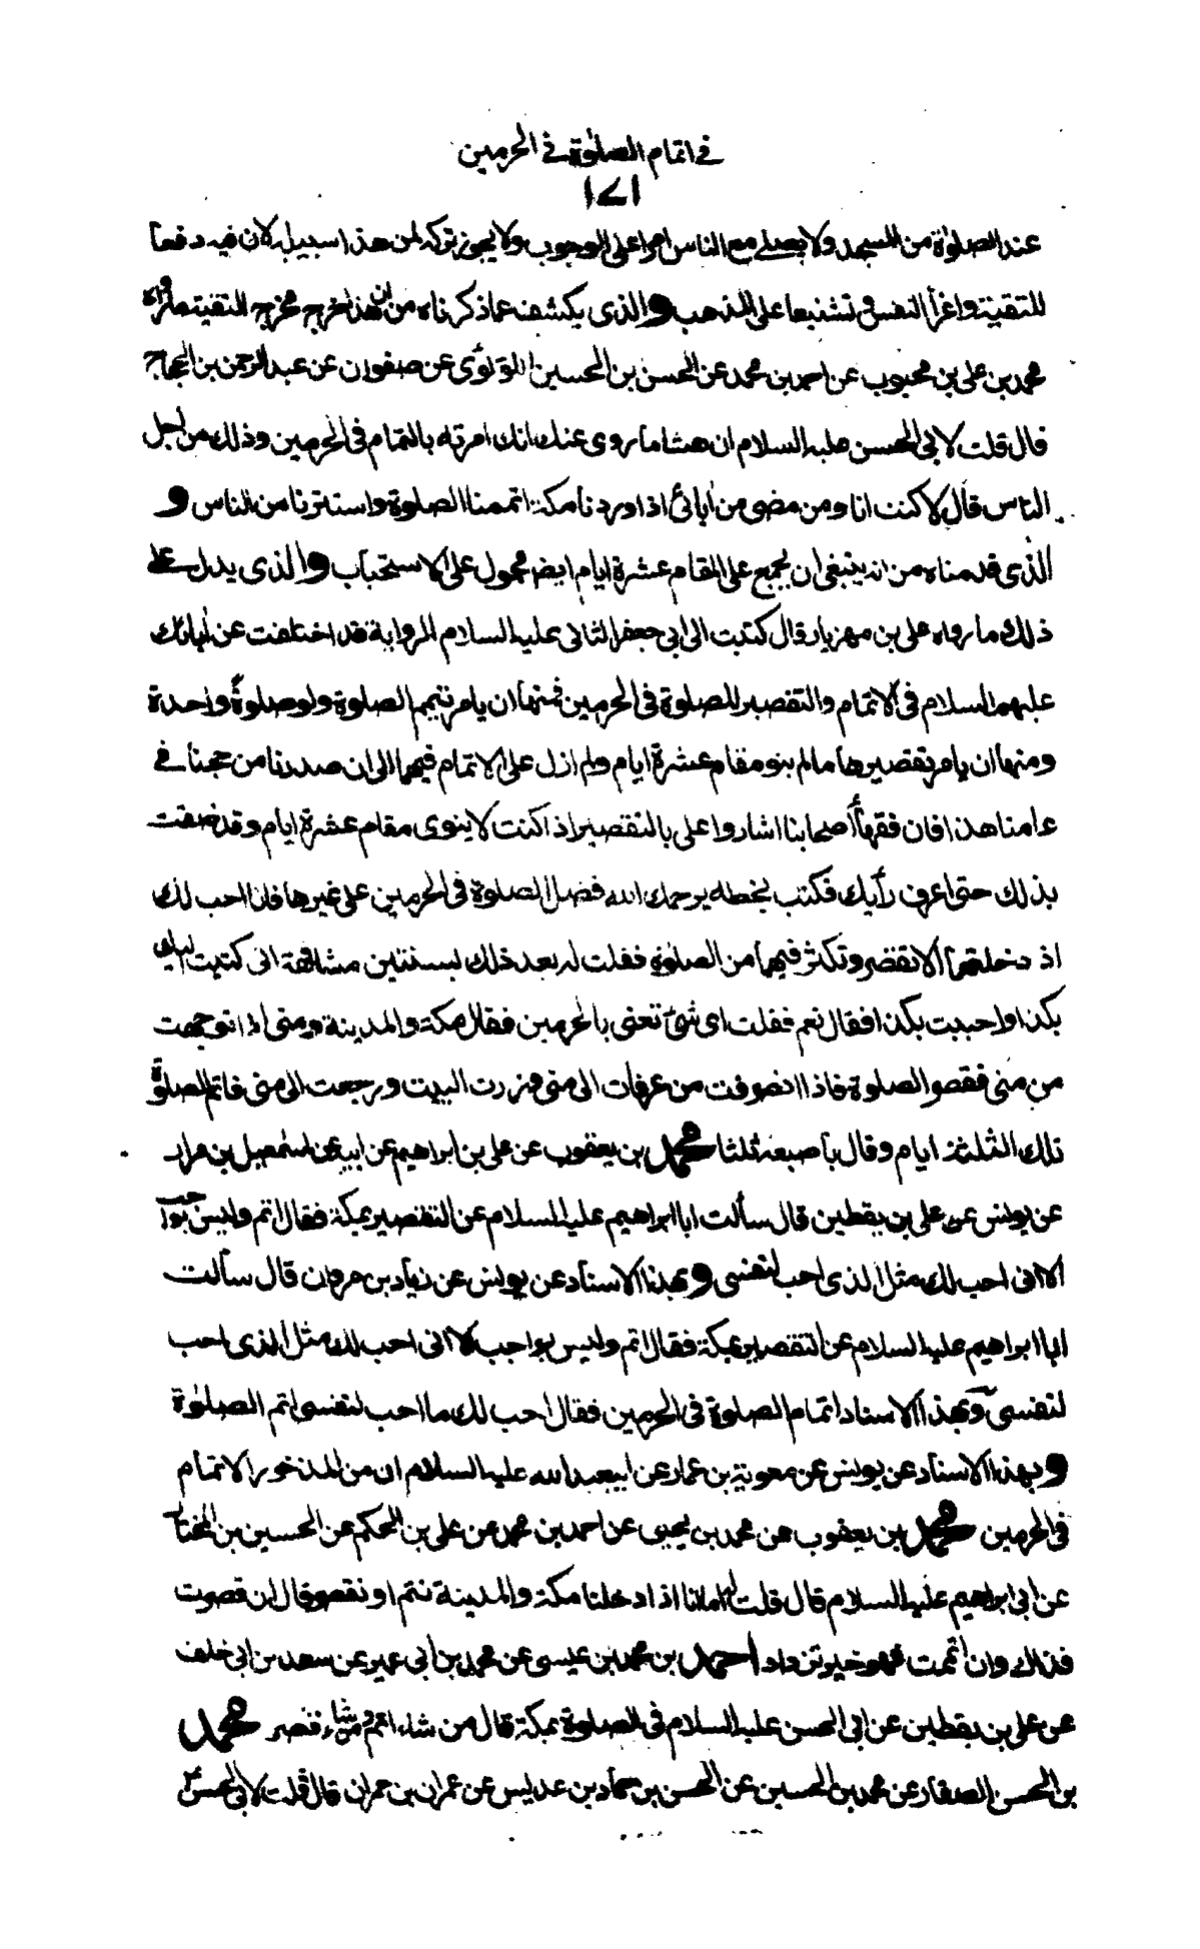 في اتمام الصلوة في الحرمين
١٧١
عند الصلوة من المسجد ولا يصلي مع الناس امرا على الوجوب ولا يجوز تركه لمن هذا سبيله لان فيه دفعا
للتقية واغراء النفس و تشنيعا على المذهب والذى يكشف عما ذكرناه من ان هذا خرج مخرج التقية ما رواه
محمد بن على بن محبوب عن احمد بن محمد عن الحسن بن الحسين اللؤلؤى عن صفوان عن عبد الرحمن بن الحجاج
قال قلت لابى الحسن عليه السلام ان هشاما روى عنك انك امرته بالتمام فى الحرمين وذلك من اجل
الناس قال لا كنت انا ومن مضى من ابائى اذا وردنا مكة اتممنا الصلوة واستترنا من الناس و
الذى قدمناه من انه ينبغى ان يجمع على المقام عشرة ايام ايضا محمول على الاستحباب والذى يدل على
ذلك ما رواه على بن مهزيار قال كتبت الى ابى جعفر الثانى عليه السلام الرواية قد اختلفت عن ابائك
عليهم السلام فى الاتمام والتقصير للصلوة فى الحرمين فمنها ان يامر تتميم الصلوة ولو صلوة واحدة
ومنها ان يامر تقصيرها ما لم ينو مقام عشرة ايام ولم ازل على الاتمام فيهما الى ان صدرنا من حجنا في
عامنا هذا فان فقهاء أصحابنا اشاروا على بالتقصير اذا كنت لا ينوى مقام عشرة ايام وقد ضقت
بذلك حتى اعرف رأيك فكتب بخطه يرحمك الله فضل الصلوة فى الحرمين على غيرها فانا احب لك
اذ دخلتهما الا تقصر وتكثر فيهما من الصلوة فقلت له بعد ذلك بسنتين مشافهة انى كتبت اليك
بكذا واجبت بكذا فقال نعم فقلت اى شئ تعنى بالحرمين فقال مكة والمدينة ومنى اذا توجهت
من منى فقصر الصلوة فاذا انصرفت من عرفات الى منى وزرت البيت ورجعت الى منى فاتم الصلوة
تلك الثلثة ايام وقال بأصبعه ثلثا محمد بن يعقوب عن على بن ابراهيم عن ابيه عن اسمعيل بن مرار
عن يونس عن على بن يقطين قال سألت ابا ابراهيم عليه السلام عن التقصير بمكة فقال اتم وليس بواجب
الا انى احب لك مثل الذى احب لنفسى وبهذا الاسناد عن يونس عن زياد بن مروان قال سألت
ابا ابراهيم عليه السلام عن التقصير بمكة فقال اتم وليس بواجب الا انى احب لك مثل الذى احب
لنفسى وبهذا الاسناد اتمام الصلوة فى الحرمين فقال احب لك ما احب لنفسى اتم الصلوة
وبهذا الاسناد عن يونس عن معوية بن عمار عن ابيعبدالله عليه السلام ان من المذخور الاتمام
فى الحرمين محمد بن يعقوب عن محمد بن يحيى عن احمد بن محمد عن على بن الحكم عن الحسين بن المختار
عن ابى ابراهيم عليه السلام قال قلت له انا اذا دخلنا مكة والمدينة نتم او نقصر قال ان قصرت
فذاك وان اتممت فهو خير تزداد احمد بن محمد بن عيسى عن محمد بن أبى عمير عن سعد بن ابى خلف
عن على بن يقطين عن ابى الحسن عليه السلام فى الصلوة بمكة قال من شاء اتم ومن شاء قصر محمد
بن الحسن الصفار عن محمد بن الحسين عن الحسن بن حماد بن عديس عن عمران بن حمران قال قلت لابى الحسن